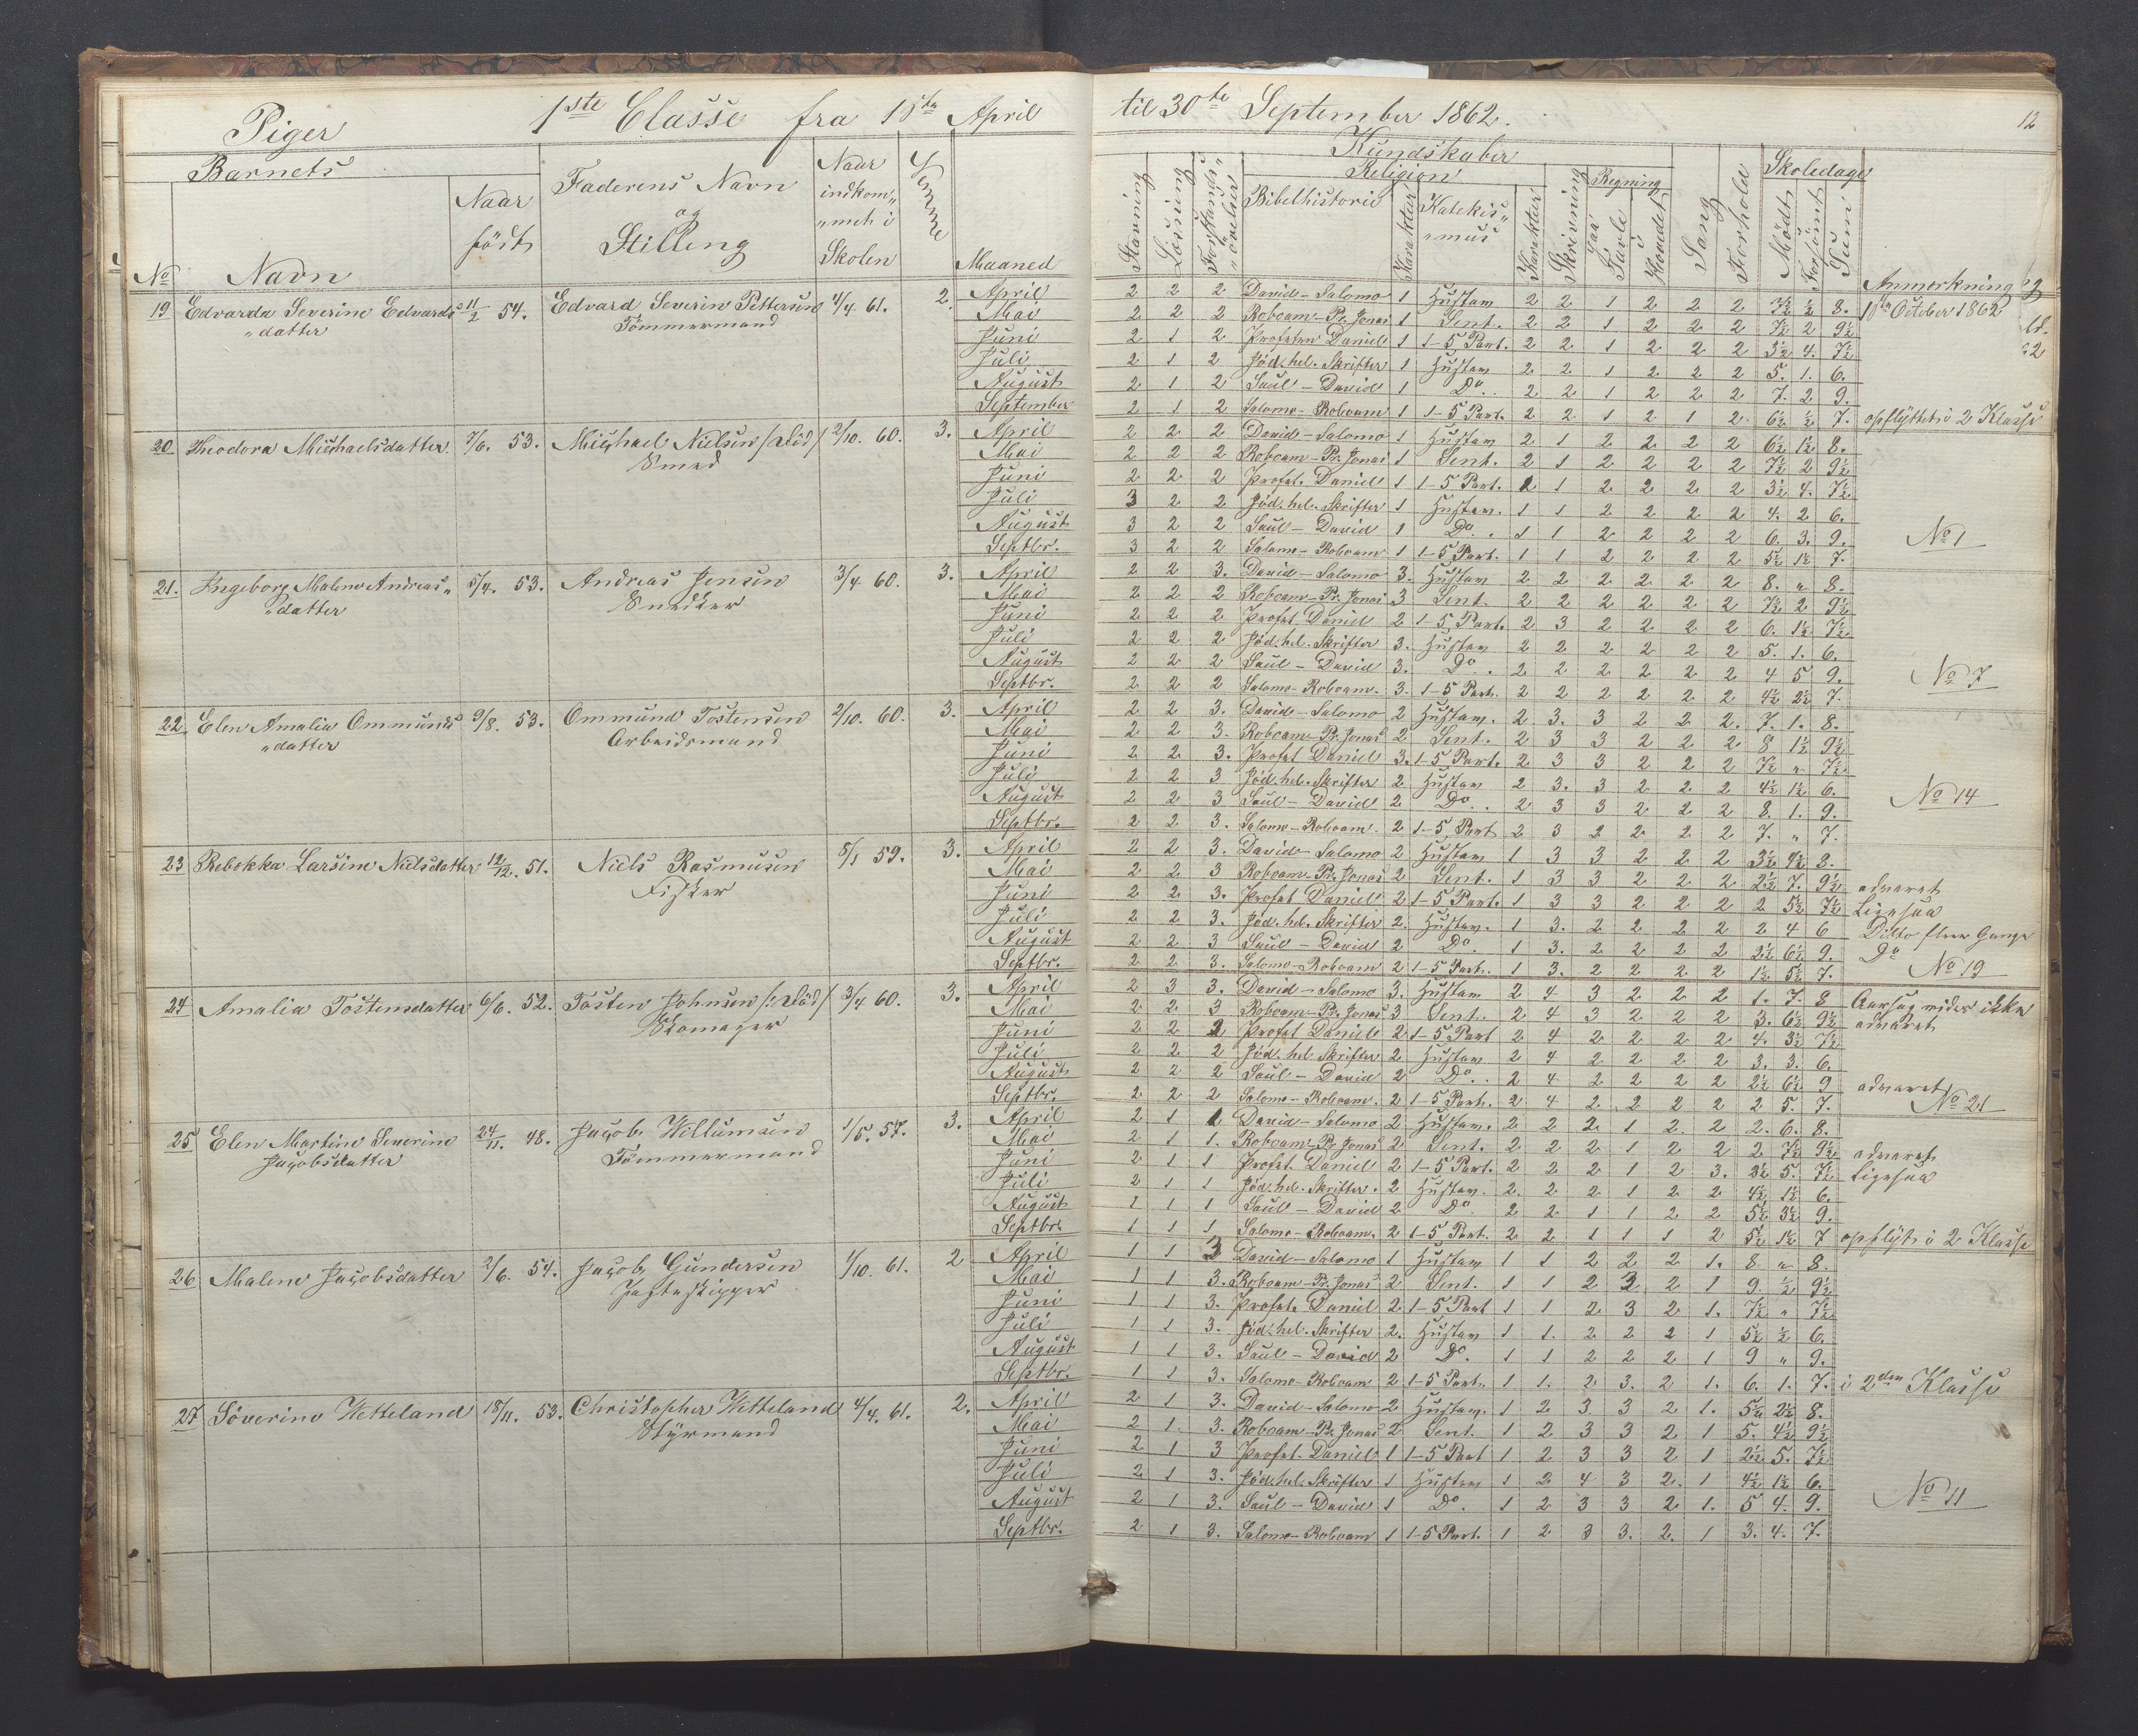 Piger 1ste Classe fra 1ste April til 30te September 1862. 12
Barnets
Faderens Navn og Stilling
Naar indkom„ „met i Skolen
Kundskaber
Religion
Regning
Skoledage
No Navn Naar födt Maaned
Stavning Læsning Forstands„ „övelser Bibelhistorie Karakter Katekis„ „mus Karakter Skrivning paa Tavle i Hovedet Sang Forhold Mödt Forsömt Sum Anmerkning
19 Edvarda Severine Edvards 11/2 54. Edvard Severin Pettersen 4/4 61. 2. April 2 2 2 David–Salomo 1 2 2 1 2 2 2 7½ ½ 8. 1ste October 1862
„datter Tömmermand Mai 2 2 2 Roboam–Pr. Jonas 1 Sent. 2 2 1 2 2 2 7½ 2 9½
Juni 2 1 2 Profeten Daniel 1 1–5 Part. 2 2 1 2 2 2 3½ 4. 7½
Juli 2 1 2 Jöd. hel. Skrifter 1 2 2 1 2 2 2 5. 1. 6.
August 2 1 2 Saul – David 1 Do. 2 2 1 2 2 2 7. 2 9.
September 2 1 2 Salomo–Roboam 1 1–5 Part. 2 2 1 2 1 2. 6½ ½ 7. opflyttet i 2 Klasse
20 Theodora Michaelsdatter 7/6. 53. Michael Nielsen /:död/ 2/10. 60. 3. April 2 2 2 David–Salomo 1 2 1 2 2 2 2 6½ 1½ 8.
Smed Mai 2 2 2 Roboam–Pr. Jonas 1 Sent. 2 1 2 2 2 2 7½ 2 9½
Juni 2 2 2 Profet. Daniel 1 1–5 Part. 1 2 2 2 2 3½ 4. 7½
Juli 3 2 2 Jöd. hel. Skrifter 1 1 1 2 2 2 2 4. 2 6.
August 3 2 2 Saul – David 1 Do. 1 1 2 2 2 2 6. 3. 9. No 1
Septbr. 3 2 2 Salomo–Roboam 1 1–5 Part. 1 1 2 2 2 2 5½ 1½ 7.
21. Ingeborg Malene Andreas„ 5/4. 53. Andreas Jensen 3/4 60. 3. April 2 2 3. David–Salomo 3. 2 2 2 2 2 2 8. „ 8.
„datter Snedker Mai 2 2 2 Roboam–Pr. Jonas 3 Sent. 2 2 2 2 2 2 7½ 2 9½
Juni 2 2 2 Profet Daniel 2 1–5 Part. 2 3 2 2 2 2 6. 1½ 7½
Juli 2 2 2 Jöd. hel. Skrifter 3. 2 2 2 2 2 2 5. 1. 6.
August 2 2 2 Saul – David 3. Do. 2 2 2 2 2 2 4 5 9. No 7
Septbr. 2 2 2 Salomo–Roboam. 3. 1–5 Part. 2 2 2 2 2 2 4½ 2½ 7.
22. Elen Amalia Ommunds 9/8. 53. Ommund Tostensen 2/10. 60. 3. April 2 2 3. David–Salomo 2 2 3. 3 2 2 2. 7. 1. 8.
„datter Arbeidsmand Mai 2 2 3. Roboam–Pr. Jonas 2 Sent. 2 3 3 2 2 2 8 1½ 9½
Juni 2 2 3. Profet Daniel 3. 1–5 Part. 2 3 3 2 2 2 7½ „ 7½
Juli 2 2 3 Jöd. hel. Skrifter 2 2 3. 3 2 2 2 4½ 1½ 6. No 14
August 2 2 3 Saul – David 2 Do. 2 3 3 2 2 2 8. 1. 9.
Septbr. 2 2 3. Salomo–Roboam. 2 1–5 Part 2 3 2 2 2 2 7. „ 7.
23 Rebekka Larsine Nielsdatter 12/12. 51. Niels Rasmusen 5/1 59. 3. April 2 2 3. David–Salomo 2 1 3 3 2 2 2 3½ 4½ 8.
Fisker Mai 2 2 3 Roboam–Pr. Jonas 2 Sent. 1 3 3 2 2 2 2½ 7. 9½ advaret
Juni 2 2 3. Profet Daniel 2 1–5 Part. 1 3 3 2 2 2 2 5½ 7½ Ligesaa
Juli 2 2 3. Jöd. hel. Skrifter 2. 1 3. 2 2 2 2 2 4 6 Ditto flere Gange
August 2 2 3 Saul – David 2 Do. 1 3. 2 2 2 2 2½ 6½ 9. Do
Septbr. 2 2 3. Salomo–Roboam 2 1–5 Part. 1 3. 2 2 2 2 1½ 5½ 7. No 19
24 Amalia Tostensdatter 6/6. 52. Tosten Johnsen /:död/ 3/4 60. 3. April 2 3 3. David–Salomo 3. 2 4 3 2 2 2 1. 7. 8 Aarsag vides ikke
Skomager Mai 2 2 3 Roboam–Pr. Jonas 3 Sent. 2 4 3 2 2 2 3. 6½ 9½ advaret
Juni 2 2 2 Profet Daniel 2 1–5 Part 2 4 2 2 2 2 4. 3½ 7½
Juli 2 2 2 Jöd. hel. Skrifter 2 2 4 2 2 2 2 3. 3. 6.
August 2 2 2 Saul – David 2 Do. 2 4 2 2 2 2 2½ 6½ 9 advaret
Septbr. 2 2 2 Salomo–Roboam. 2 1–5 Part. 2 4 2 2 2 2 2 5. 7. No 21
25 Elen Martine Severine 24/11. 48. Jacob Willumsen 1/5. 57. 3. April 2 1 1 David–Salomo 2 2 2 2 1 2 2 2. 6. 8.
Jacobsdatter Tömmermand Mai 2 1 1. Roboam–Pr. Jonas 2 Sent. 2 2 2 1 2 2 2 7½ 9½ advaret
Juni 2 1 1 Profet. Daniel 2 1–5 Part. 2 2 2 1 2 3. 2½ 5. 7½ Ligesaa
Juli 2 1 1 Jöd. hel. Skrifter. 2 2. 2 2 1 2 2 4½ 1½ 6.
August 1 1 1 Saul – David 2 Do. 2 2 1 1 2 2 5½ 3½ 9.
Septbr. 1 1 1 Salomo–Roboam. 2 1–5 Part. 2 2 1 1 1 2 5½ 1½ 7 opflyt i 2 Klasse
26 Malene Jacobsdatter 2/6. 54. Jacob Gundersen 1/10. 61. 2 April 1 1 3 David–Salomo 1 1 1 2 2 2 1. 8 „ 8.
Jagteskipper Mai 1 1 3. Roboam–Pr. Jonas 2 Sent. 1 1 2 3 2 1 9. ½ 9½
Juni 1 1 3. Profet. Daniel 2. 1–5 Part 1 1 2 3 2 1. 7½ „ 7½
Juli 1 1 3. Jöd. hel. Skrifter 2. 1 1. 2 2 2 1 5½ ½ 6.
August 1 1 3. Saul – David 2 Do. 1 1 2 2 2 1 9 „ 9.
Septbr. 1 1 3. Salomo–Roboam 2 1–5 Part. 1 1. 2 3. 2 1. 6. 1. 7. i 2den Klasse
27 Söverine Wetteland 18/11. 53. Christopher Wetteland 4/4. 61. 2. April 2 1 3. David–Salomo 2 1 2 3 3 2 1. 5½ 2½ 8.
Styrmand Mai 2 1. 3. Roboam–Pr. Jonas 2 Sent. 1 2 3 3 2 1 5. 4½ 9½
Juni 2 1 3 Profet. Daniel 1 1–5 Part 1 2 3 3 2 1 2½ 5. 7½
Juli 2 1 3. Jöd. hel. Skrifter 1 1 2 4 3 2. 1 4½ 1½ 6.
August 2 1 3. Saul – David 1 Do. 1 2 3 3 2 1. 5 4. 9. No 11
Septbr. 2 1 3. Salomo–Roboam 1 1–5 Part. 1 2 3 3. 2. 1 3. 4. 7.